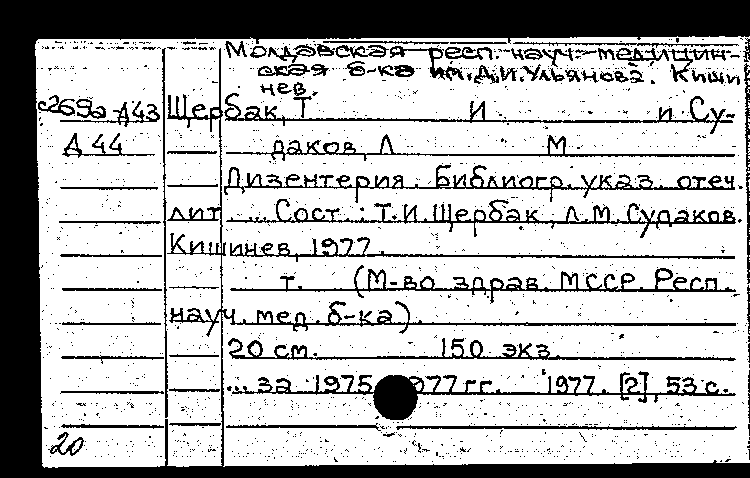 Молдавская респ. науч.-медицин-
ская б-ка им. Д.И. Ульянова. Киши
нев.
с269а-Д43 Щербак, Т И и Су-
Д 44 даков, Л М
Дизентерия. Библиогр. указ. отеч.
лит. ... Сост.: Т.И. Щербак, Л.М. Судаков.
Кишинев, 1977.
т. (М-во здрав. МССР. Респ.
науч. мед. б-ка).
20 см. 150 экз.
... за 1975 977 гг. 1977. [2], 53 с.
20